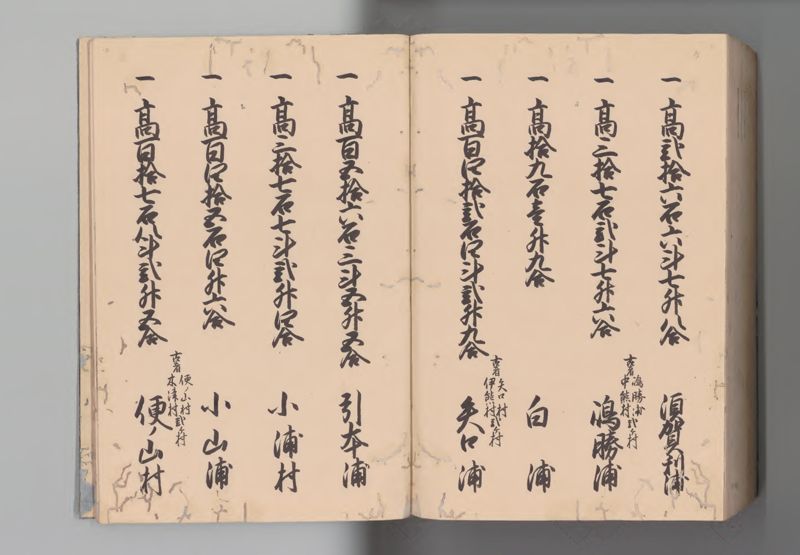 一 高弐拾六石六斗七升八合 須賀利浦
一 高三拾七石弐斗七升六合 嶋勝浦
古者 嶋勝浦 中熊村 弐ヶ村
一 高拾九石壱升九合 白浦
一 高百四拾弐石四斗弐升九合 矢口浦
古者 矢口村 伊熊村 弐ヶ村
一 高百五拾六石三斗五升五合 引本浦
一 高三拾七石七斗弐升四合 小浦村
一 高百四拾五石四升六合 小山浦
一 高百拾七石八斗弐升五合 便ノ山村
古者 便ノ山村 木津村 弐ヶ村